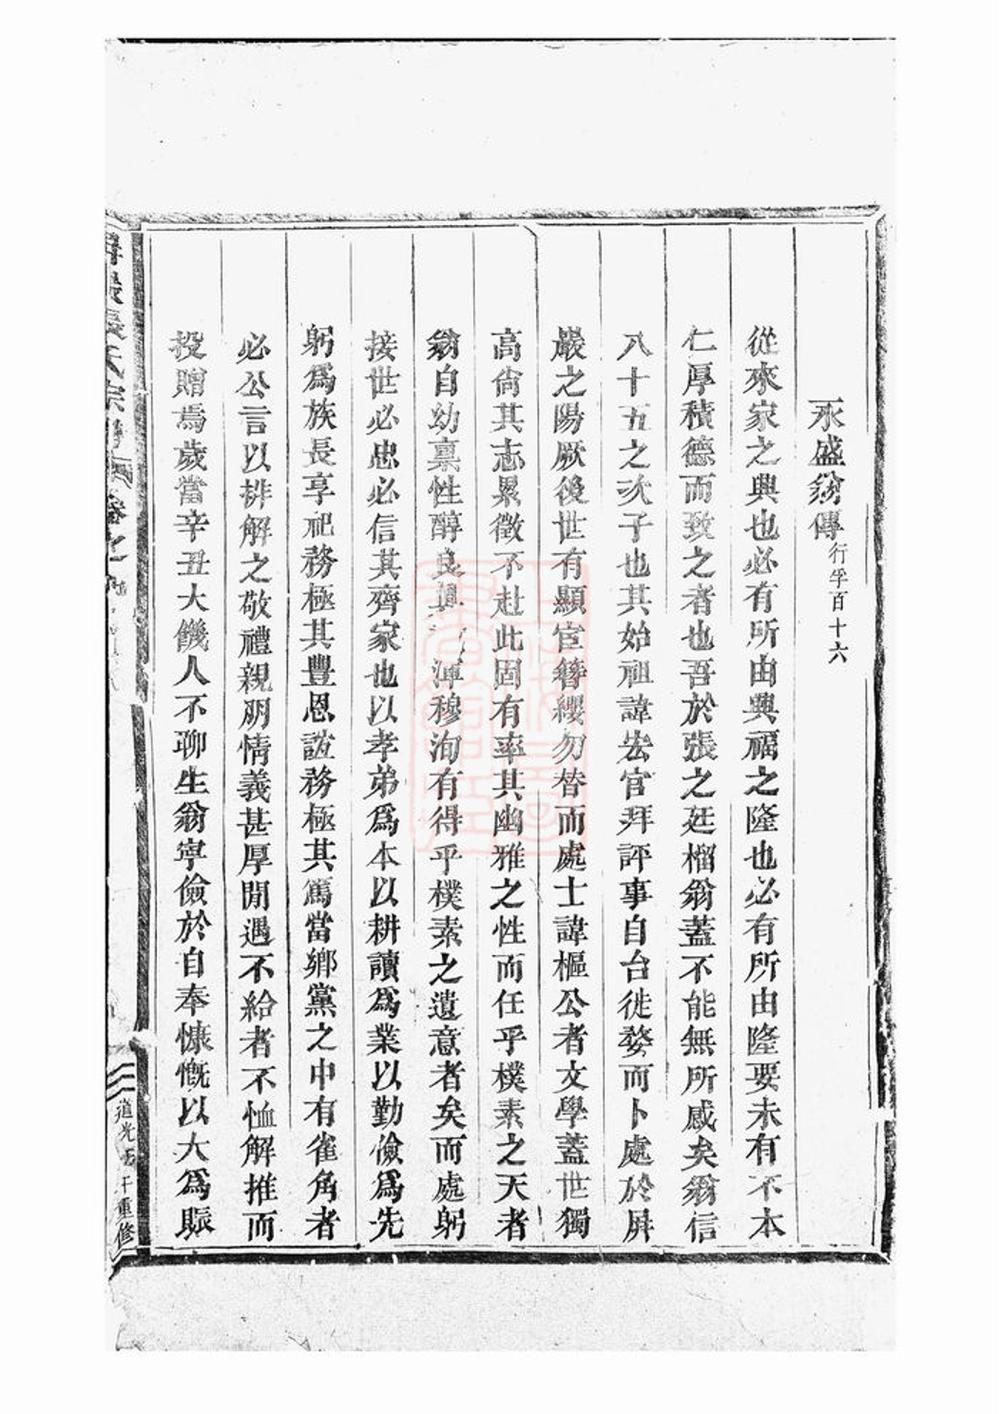 永盛翁傳行孚百十六
從來家之興也必有所由興福之隆也必有所由隆要未有不本
仁厚積德而致之者也吾於張之廷榴翁蓋不能無所感矣翁信
八十五之次子也其始祖諱宏官拜評事自台徙婺而卜處於屏
巖之陽厥後世有顯宦簪纓勿替而處士諱樞公者文學蓋世獨
高尙其志累徵不赴此固有率其幽雅之性而任乎樸素之天者
翁自幼稟性醇良 渾穆洵有得乎樸素之遺意者矣而處躬
接世必忠必信其齊家也以孝弟爲本以耕讀爲業以勤儉爲先
躬爲族長享祀務極其豐恩誼務極其篤當鄉黨之中有雀角者
必公言以排解之敬禮親朋情義甚厚閒遇不給者不恤解推而
投贈焉歲當辛丑大饑人不聊生翁寧儉於自奉慷慨以大爲賑
屏巖張氏宗譜 卷之
道光 午重修